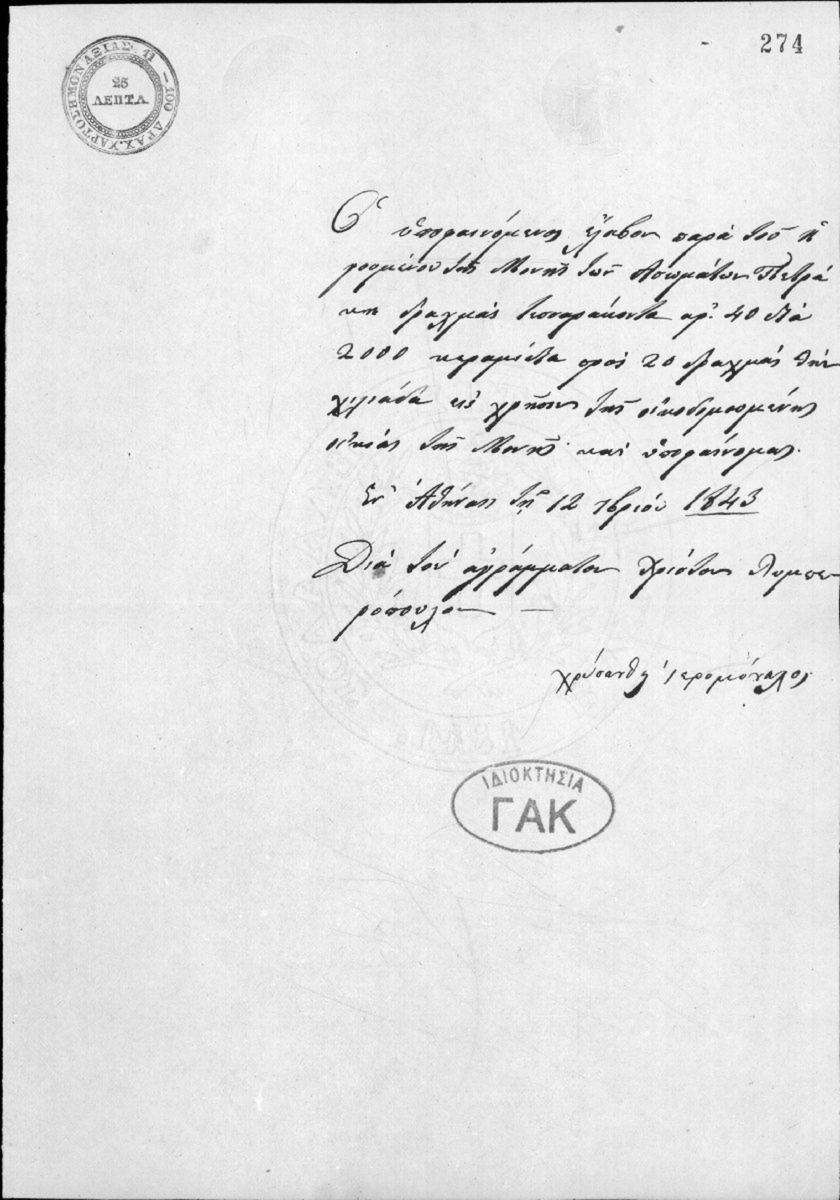 274
ΧΑΡΤΟΣΗΜΟΝ ΑΞΙΑΣ 41 – 100 ΔΡΑΧ.
25
ΛΕΠΤΑ.
Ὁ ὑποφαινόμενος ἔλαβον παρὰ τοῦ ἡ
γουμένου τῆς Μονῆς τῶν Ἀσωμάτων Πετρά
κη δραχμάς τεσσαράκοντα αρ: 40 διὰ
2000 κεραμίδια πρὸς 20 δραχμάς τὴν
χιλιάδα εἰς χρῆσιν τῆς οἰκοδομουμένης
οἰκίας τῆς Μονῆς καὶ ὑποφαίνομαι.
Ἐν Ἀθήναις τῇ 12 1843
Διὰ τὸν ἀγράμματον Χρίστον Λυμπε
ρόπουλον —
χρύσανθος ἱερομόναχος
ΙΔΙΟΚΤΗΣΙΑ
ΓΑΚ